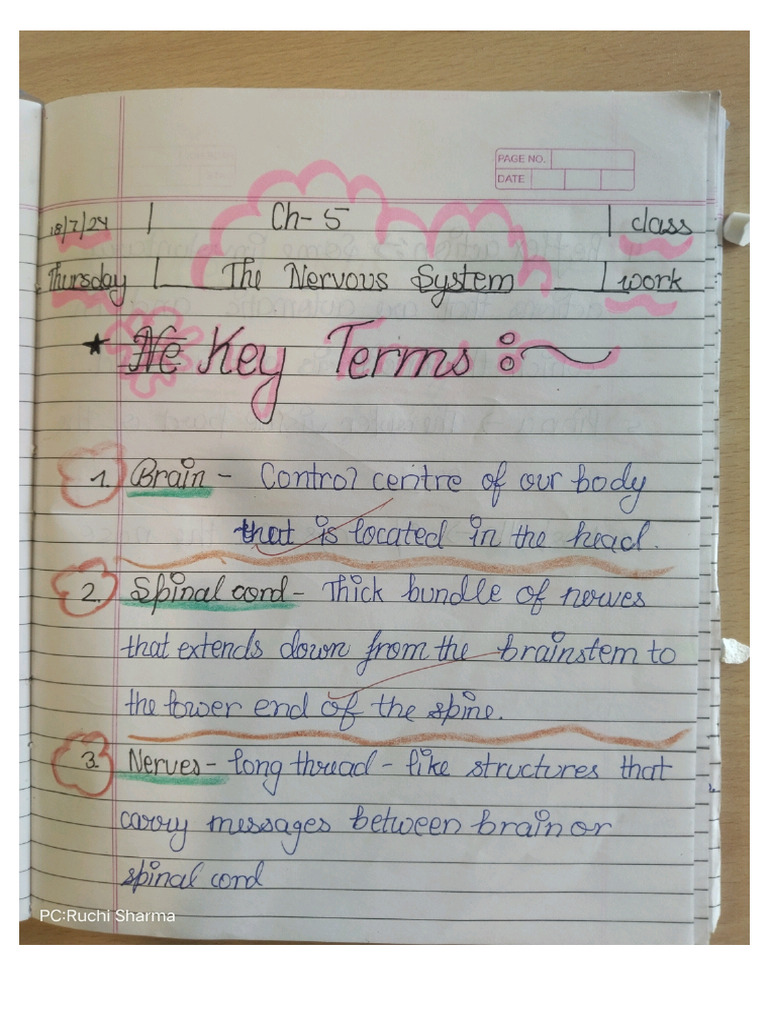 PAGE NO.
DATE
18/7/24 | Ch- 5 | class
Thursday | The Nervous System | work
★ Ne Key Terms :~
1. Brain - Control centre of our body
that is located in the head.
2. Spinal cord - Thick bundle of nerves
that extends down from the brainstem to
the lower end of the spine.
3. Nerves - long thread - like structures that
carry messages between brain or
spinal cord
PC:Ruchi Sharma